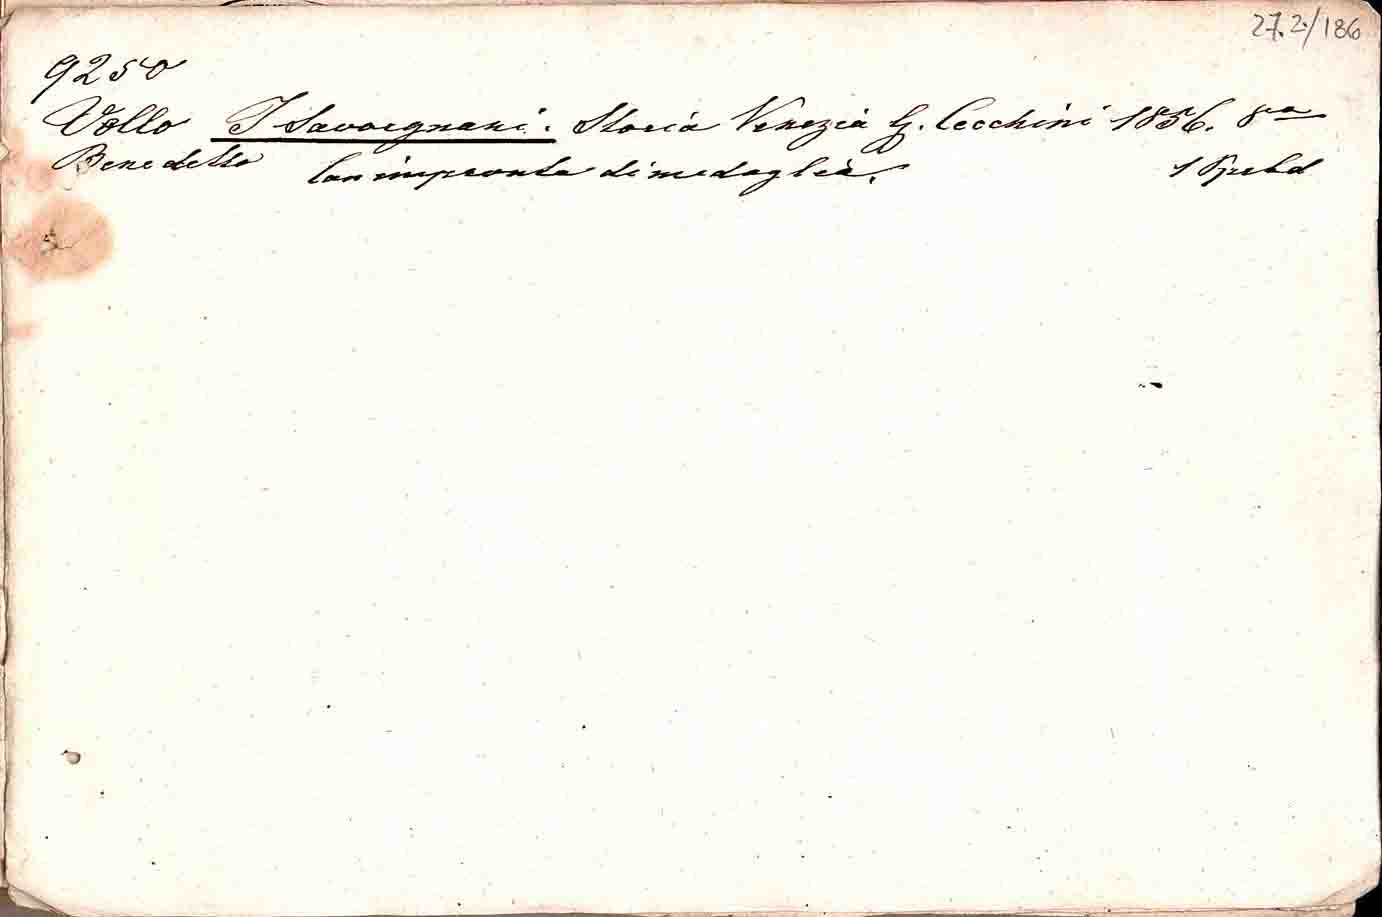 27.2/186
9250
Vollo I Savorgnani. Storia Venezia G. Cecchini 1856. 8vo
Benedetto Con impronta di medaglia. 1